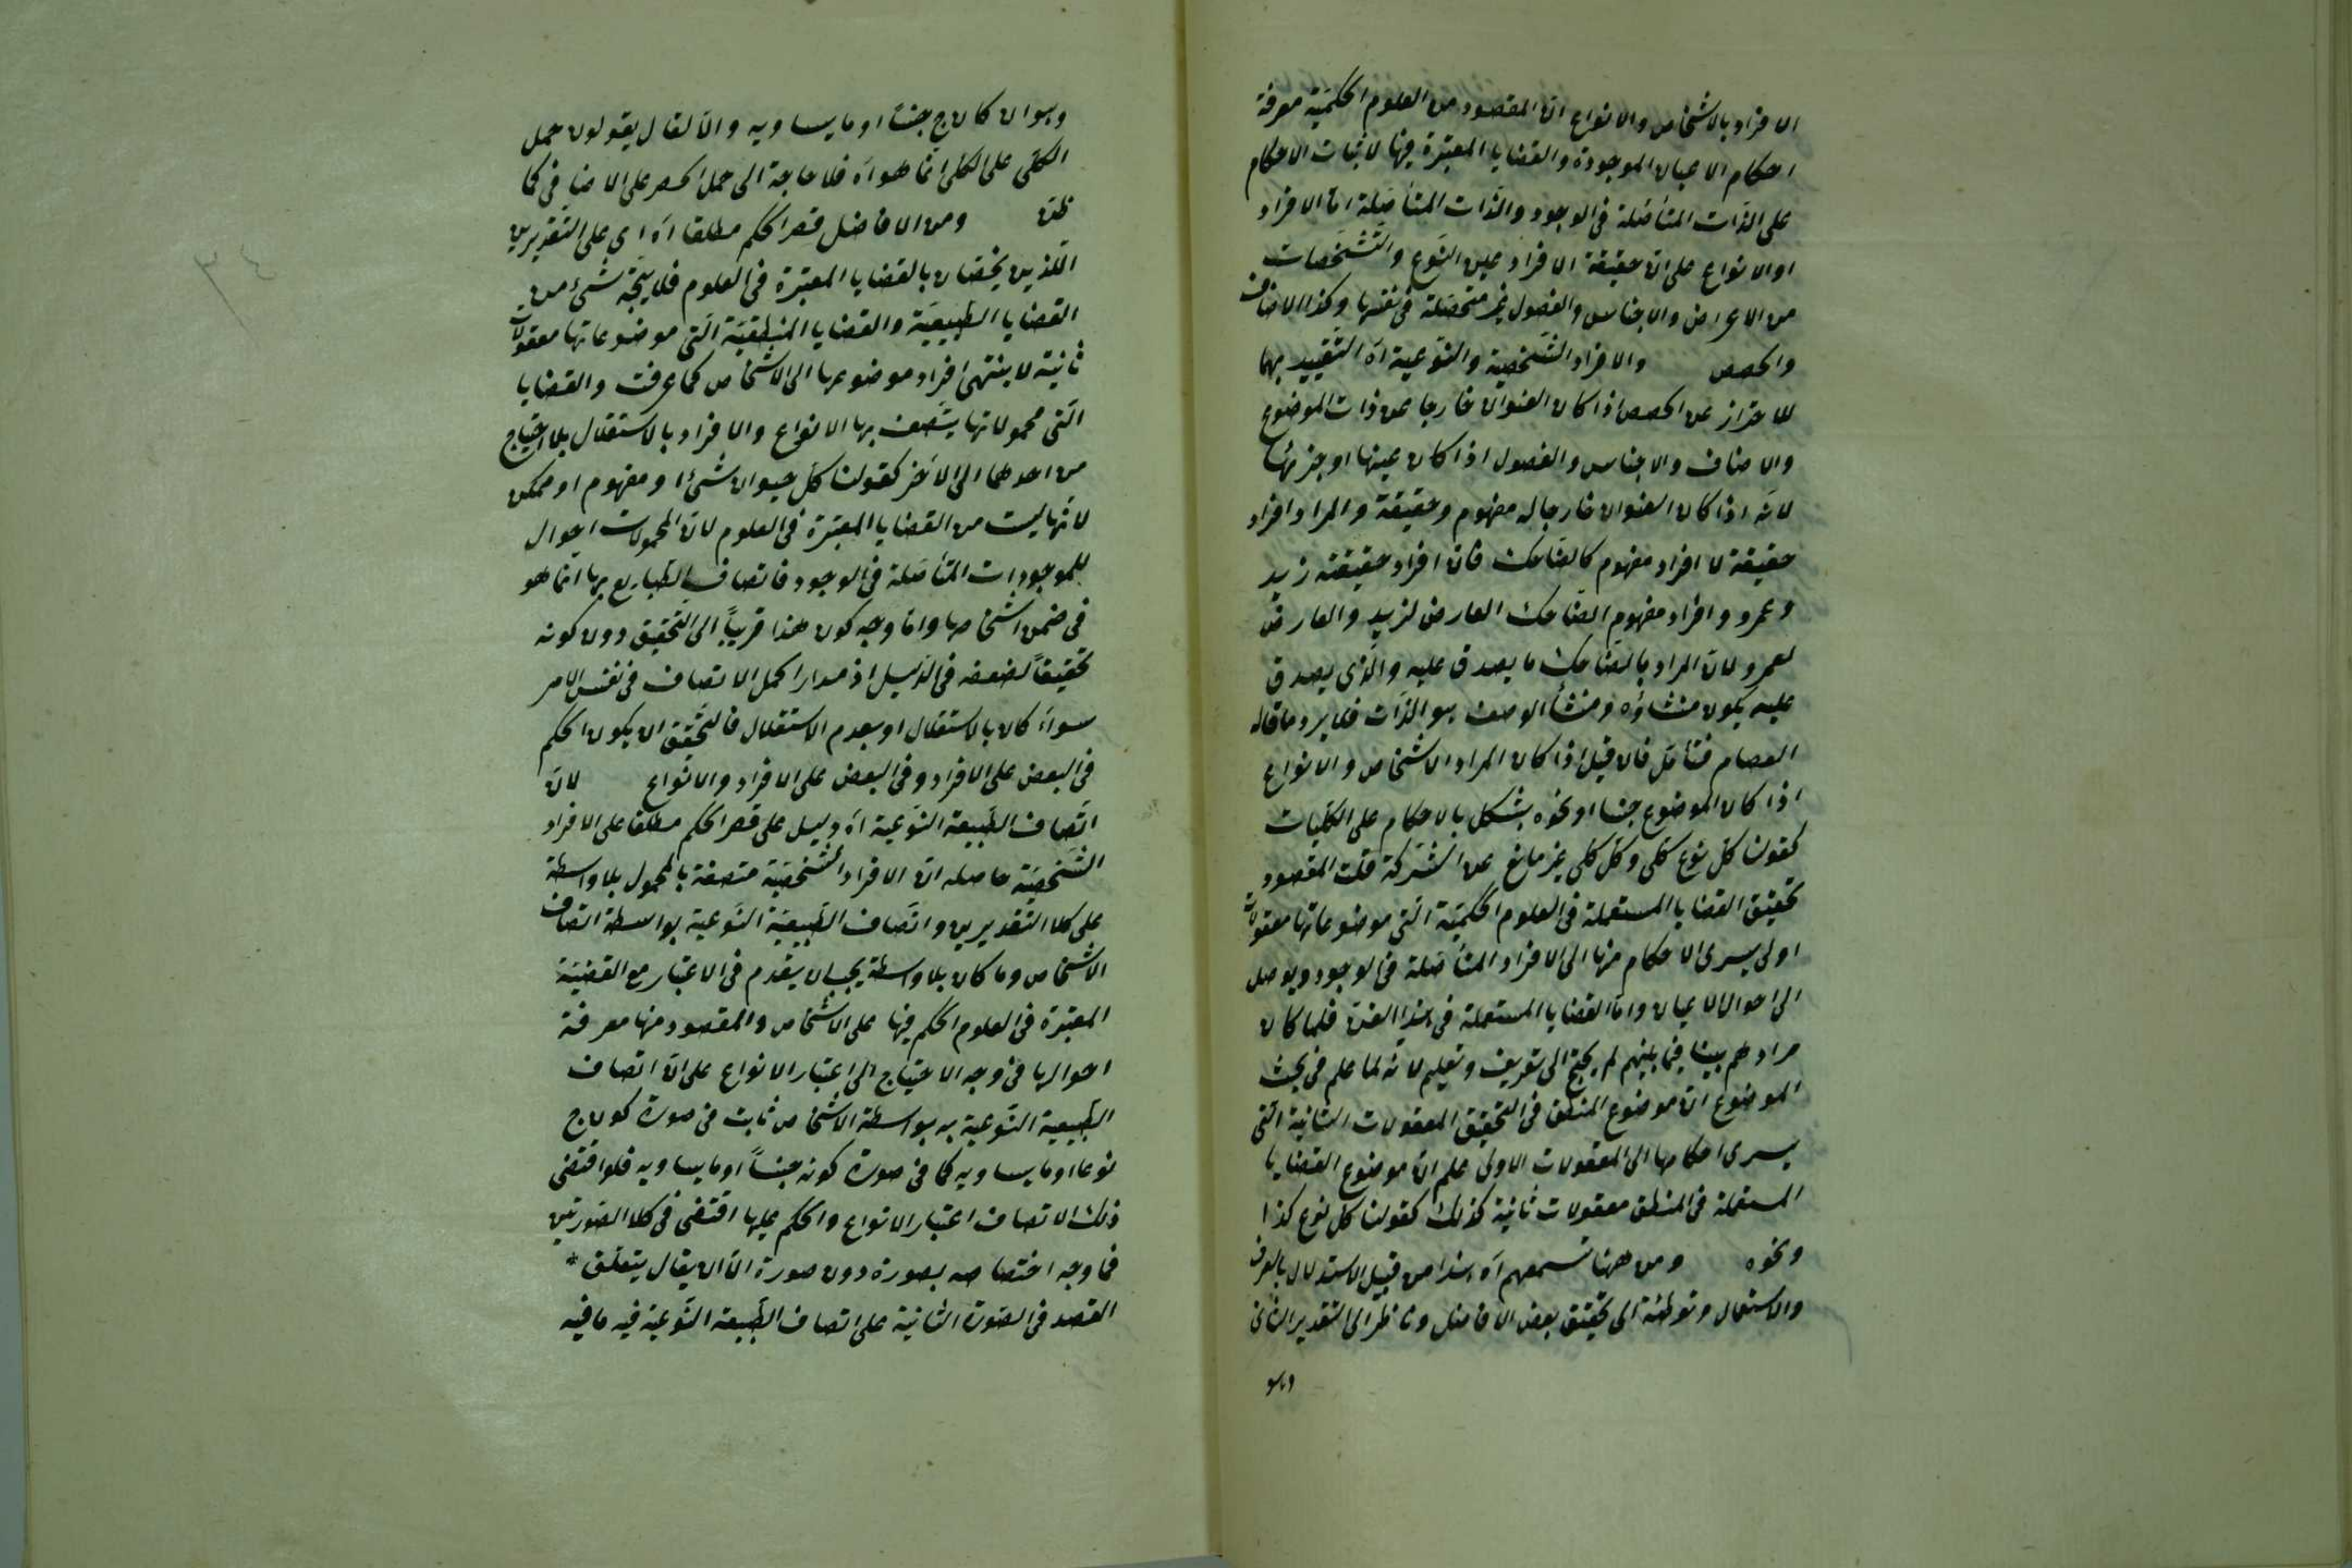 الافراد بالاشخاص والانواع انّ المقصود من العلوم الحكميّة معرفة
احكام الاعيان الموجودة والقضايا المعتبرة فيها لاثبات الاحكام
على الذّات المتأصّلة فى الوجود والذّات المتأصّلة امّا الافراد
او الانواع على انّ حقيقة الافراد عين النّوع والتّشخّصات
من الاعراض والاجناس والفصول غير متحصّلة فى نفسها وكذا الاصناف
والحصص والافراد الشّخصية والنّوعية آه التّقييد بهما
للاحتراز عن الحصص اذا كان العنوان خارجا عن ذات الموضوع
والاصناف والاجناس والفصول اذا كان عينها او جزئها
لانّه اذا كان العنوان خارجا له مفهوم وحقيقة والمراد افراد
حقيقة لا افراد مفهوم كالضّاحك فان افراد حقيقته زيد
وعمرو وافراد مفهوم الضّاحك العارض لزيد والعارض
لعمرو لانّ المراد بالضّاحك ما يصدق عليه والّذى يصدق
عليه يكون منشاؤه ومنشأ الوصف هو الذّات فلا يرد ما قاله
العصام فتأمّل فان قيل اذا كان المراد الاشخاص والانواع
اذا كان الموضوع جنسا او نحوه يشكل بالاحكام على الكلّيات
كقولنا كلّ نوع كلّى وكلّ كلّى غير مانع عن الشّركة قلت المقصود
تحقيق القضايا المستعملة فى العلوم الحكميّة الّتى موضوعاتها معقولات
اولى يسرى الاحكام منها الى الافراد المتأصّلة فى الوجود ويوصل
الى احوال الاعيان وامّا القضايا المستعملة فى هذا الفنّ فلما كان
مرادهم بيّنا فيما بينهم لم يحتج الى تعريف وتعليم لانّه لما علم فى بحث
الموضوع انّ موضوع المنطق فى التّحقيق المعقولات الثّانية الّتى
يسرى احكامها الى المعقولات الاولى علم انّ موضوع القضايا
المستعملة فى المنطق معقولات ثانية كذلك كقولنا كلّ نوع كذا
ونحوه ومن ههنا تسمعهم آه هذا من قبيل الاستدلال بالعرف
والاستعمال وتوطئة الى تحقيق بعض الافاضل وناظر الى التقدير الثّانى
وهو
وهو ان كان ج جنسًا او ما يساويه والّا لقال يقولون حمل
الكلّى على الكلّى انّما هو آه فلا حاجة الى حمل الحصر على الاضافى كما
ظنّ ومن الافاضل قصر الحكم مطلقا آه اى على التّقديرين
اللّذين يختصّان بالقضايا المعتبرة فى العلوم فلا يتّجه شئ من
القضايا الطّبيعيّة والقضايا المنطقيّة الّتى موضوعاتها معقولات
ثانية لا ينتهى افراد موضوعها الى الاشخاص كما عرفت والقضايا
الّتى محمولاتها يتّصف بها الانواع والافراد بالاستقلال بلا احتياج
من احدهما الى الآخر كقولنا كلّ حيوان شئ او مفهوم او ممكن
لانّها ليست من القضايا المعتبرة فى العلوم لانّ المحمولات احوال
للموجودات المتأصّلة فى الوجود فاتصاف الطّبايع بها انّما هو
فى ضمن اشخاصها وامّا وجه كون هذا قريبًا الى التّحقيق دون كونه
تحقيقًا لضعفه فى الدّليل اذ مدار الحمل الاتصاف فى نفس الامر
سواءً كان بالاستقلال او بعدم الاستقلال فالتّحقيق ان يكون الحكم
فى البعض على الافراد وفى البعض على الافراد والانواع لانّ
اتّصاف الطّبيعة النّوعية آه دليل على قصر الحكم مطلقا على الافراد
الشّخصيّة حاصله انّ الافراد الشّخصيّة متصفة بالمحمول بلا واسطة
على كلا التقديرين واتّصاف الطّبيعيّة النّوعية بواسطة اتصاف
الاشخاص وما كان بلا واسطة يجب ان يقدم فى الاعتبار مع القضيّة
المعتبرة فى العلوم الحكم فيها على الاشخاص والمقصود منها معرفة
احوالها فى وجه الاحتياج الى اعتبار الانواع على انّ اتصاف
الطّبيعية النّوعية به بواسطة الاشخاص ثابت فى صورة كون ج
نوعا او ما يساويه كما فى صورة كونه جنسًا او ما يساويه فلو اقتضى
ذلك الاتصاف اعتبار الانواع والحكم عليها اقتضى فى كلا الصّورتين
فما وجه اختصاصه بصورة دون صورة الّا ان يقال يتعلّق *
القصد فى الصّورة الثّانية على اتصاف الطّبيعة النّوعيّة فيه ما فيه
٣٤